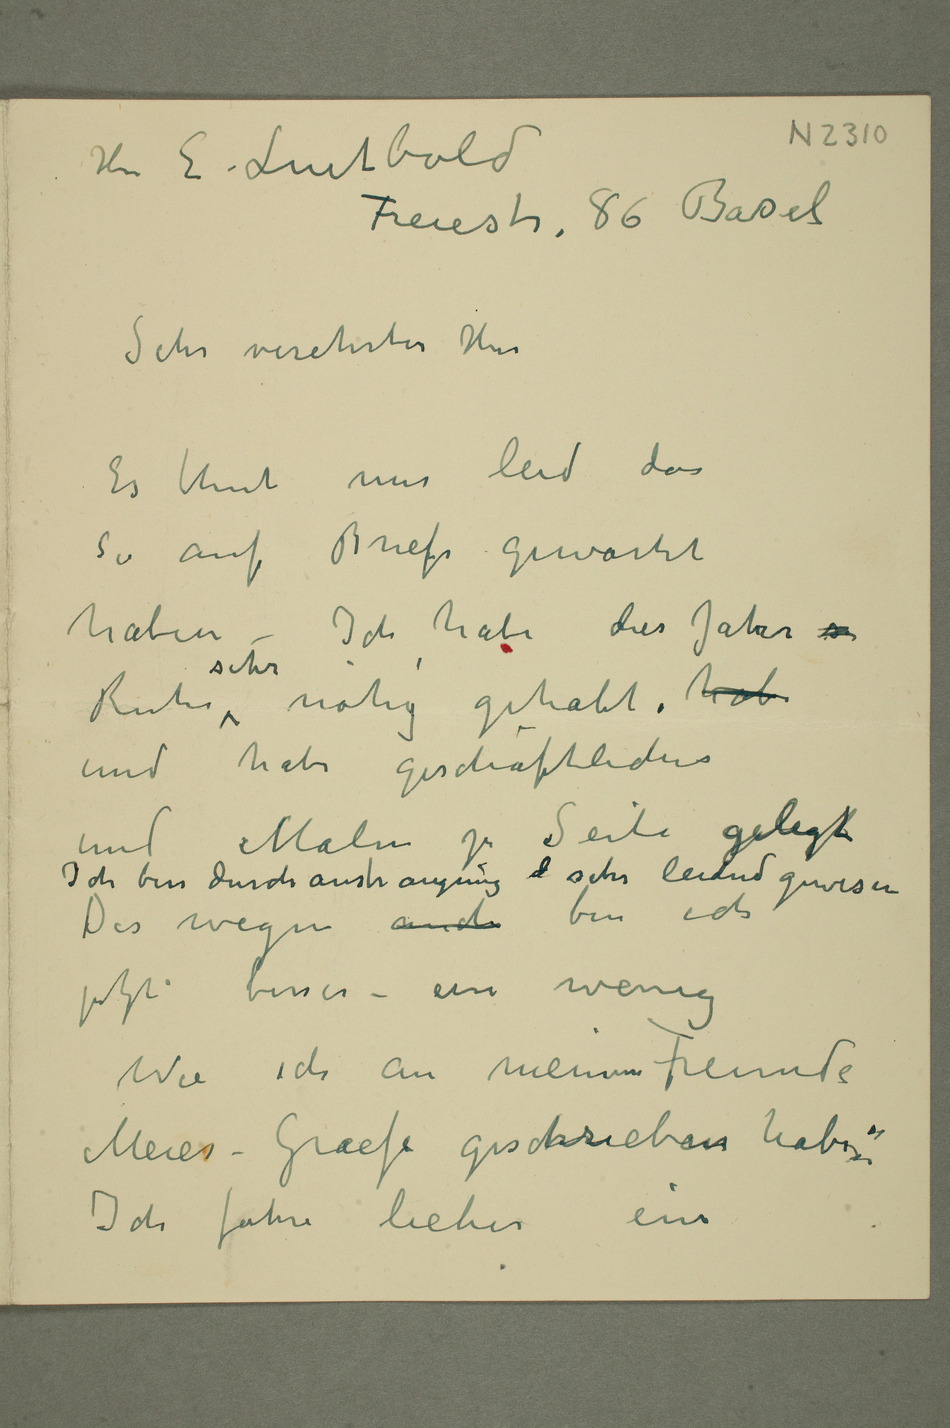 N 2310
Herr E. Luitbold
Freiestr. 86 Basel
Sehr verehrter Herr
Es thut mir leid das
Si auf Briefe gewartet
haben – Ich habe dies Jahr
Ruhe sehr nötig gehabt. hab
und habe geschäftliches
und Malen zu Seite gelegt
Ich bin durch anstrangung sehr leidend gewesen
Des wegen auch bin ich
jetzt besser – ein wenig
Wie ich an meinem Freunde
Meier-Graefe geschrieben habe:"
Ich fahre lieber ein